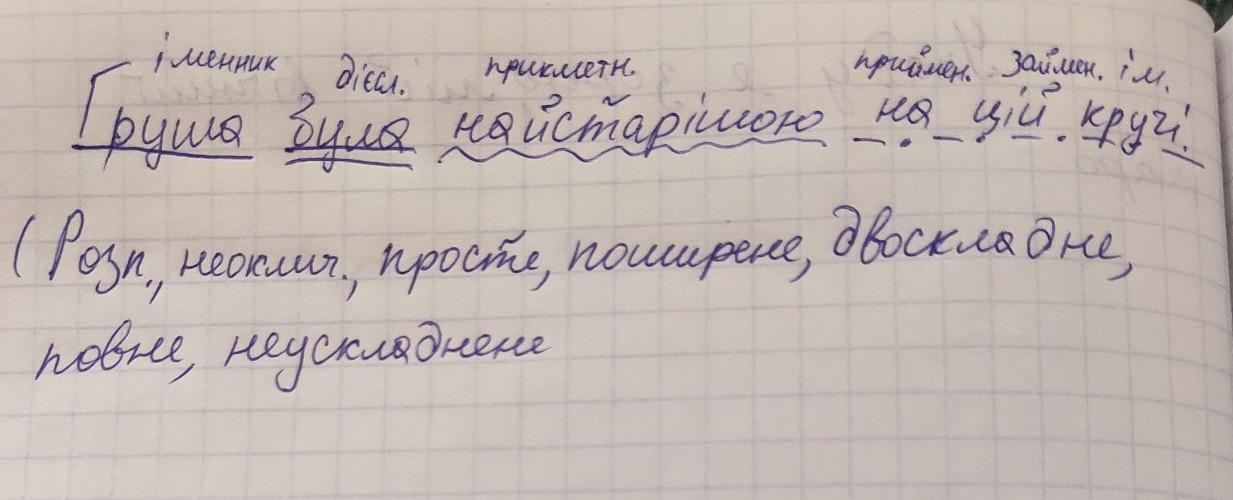 іменник дієсл. прикметн. приймен. займен. ім.
Груша була найстарішою на цій кручі.
(Розп., неоклич., просте, поширене, двоскладне,
повне, неускладнене